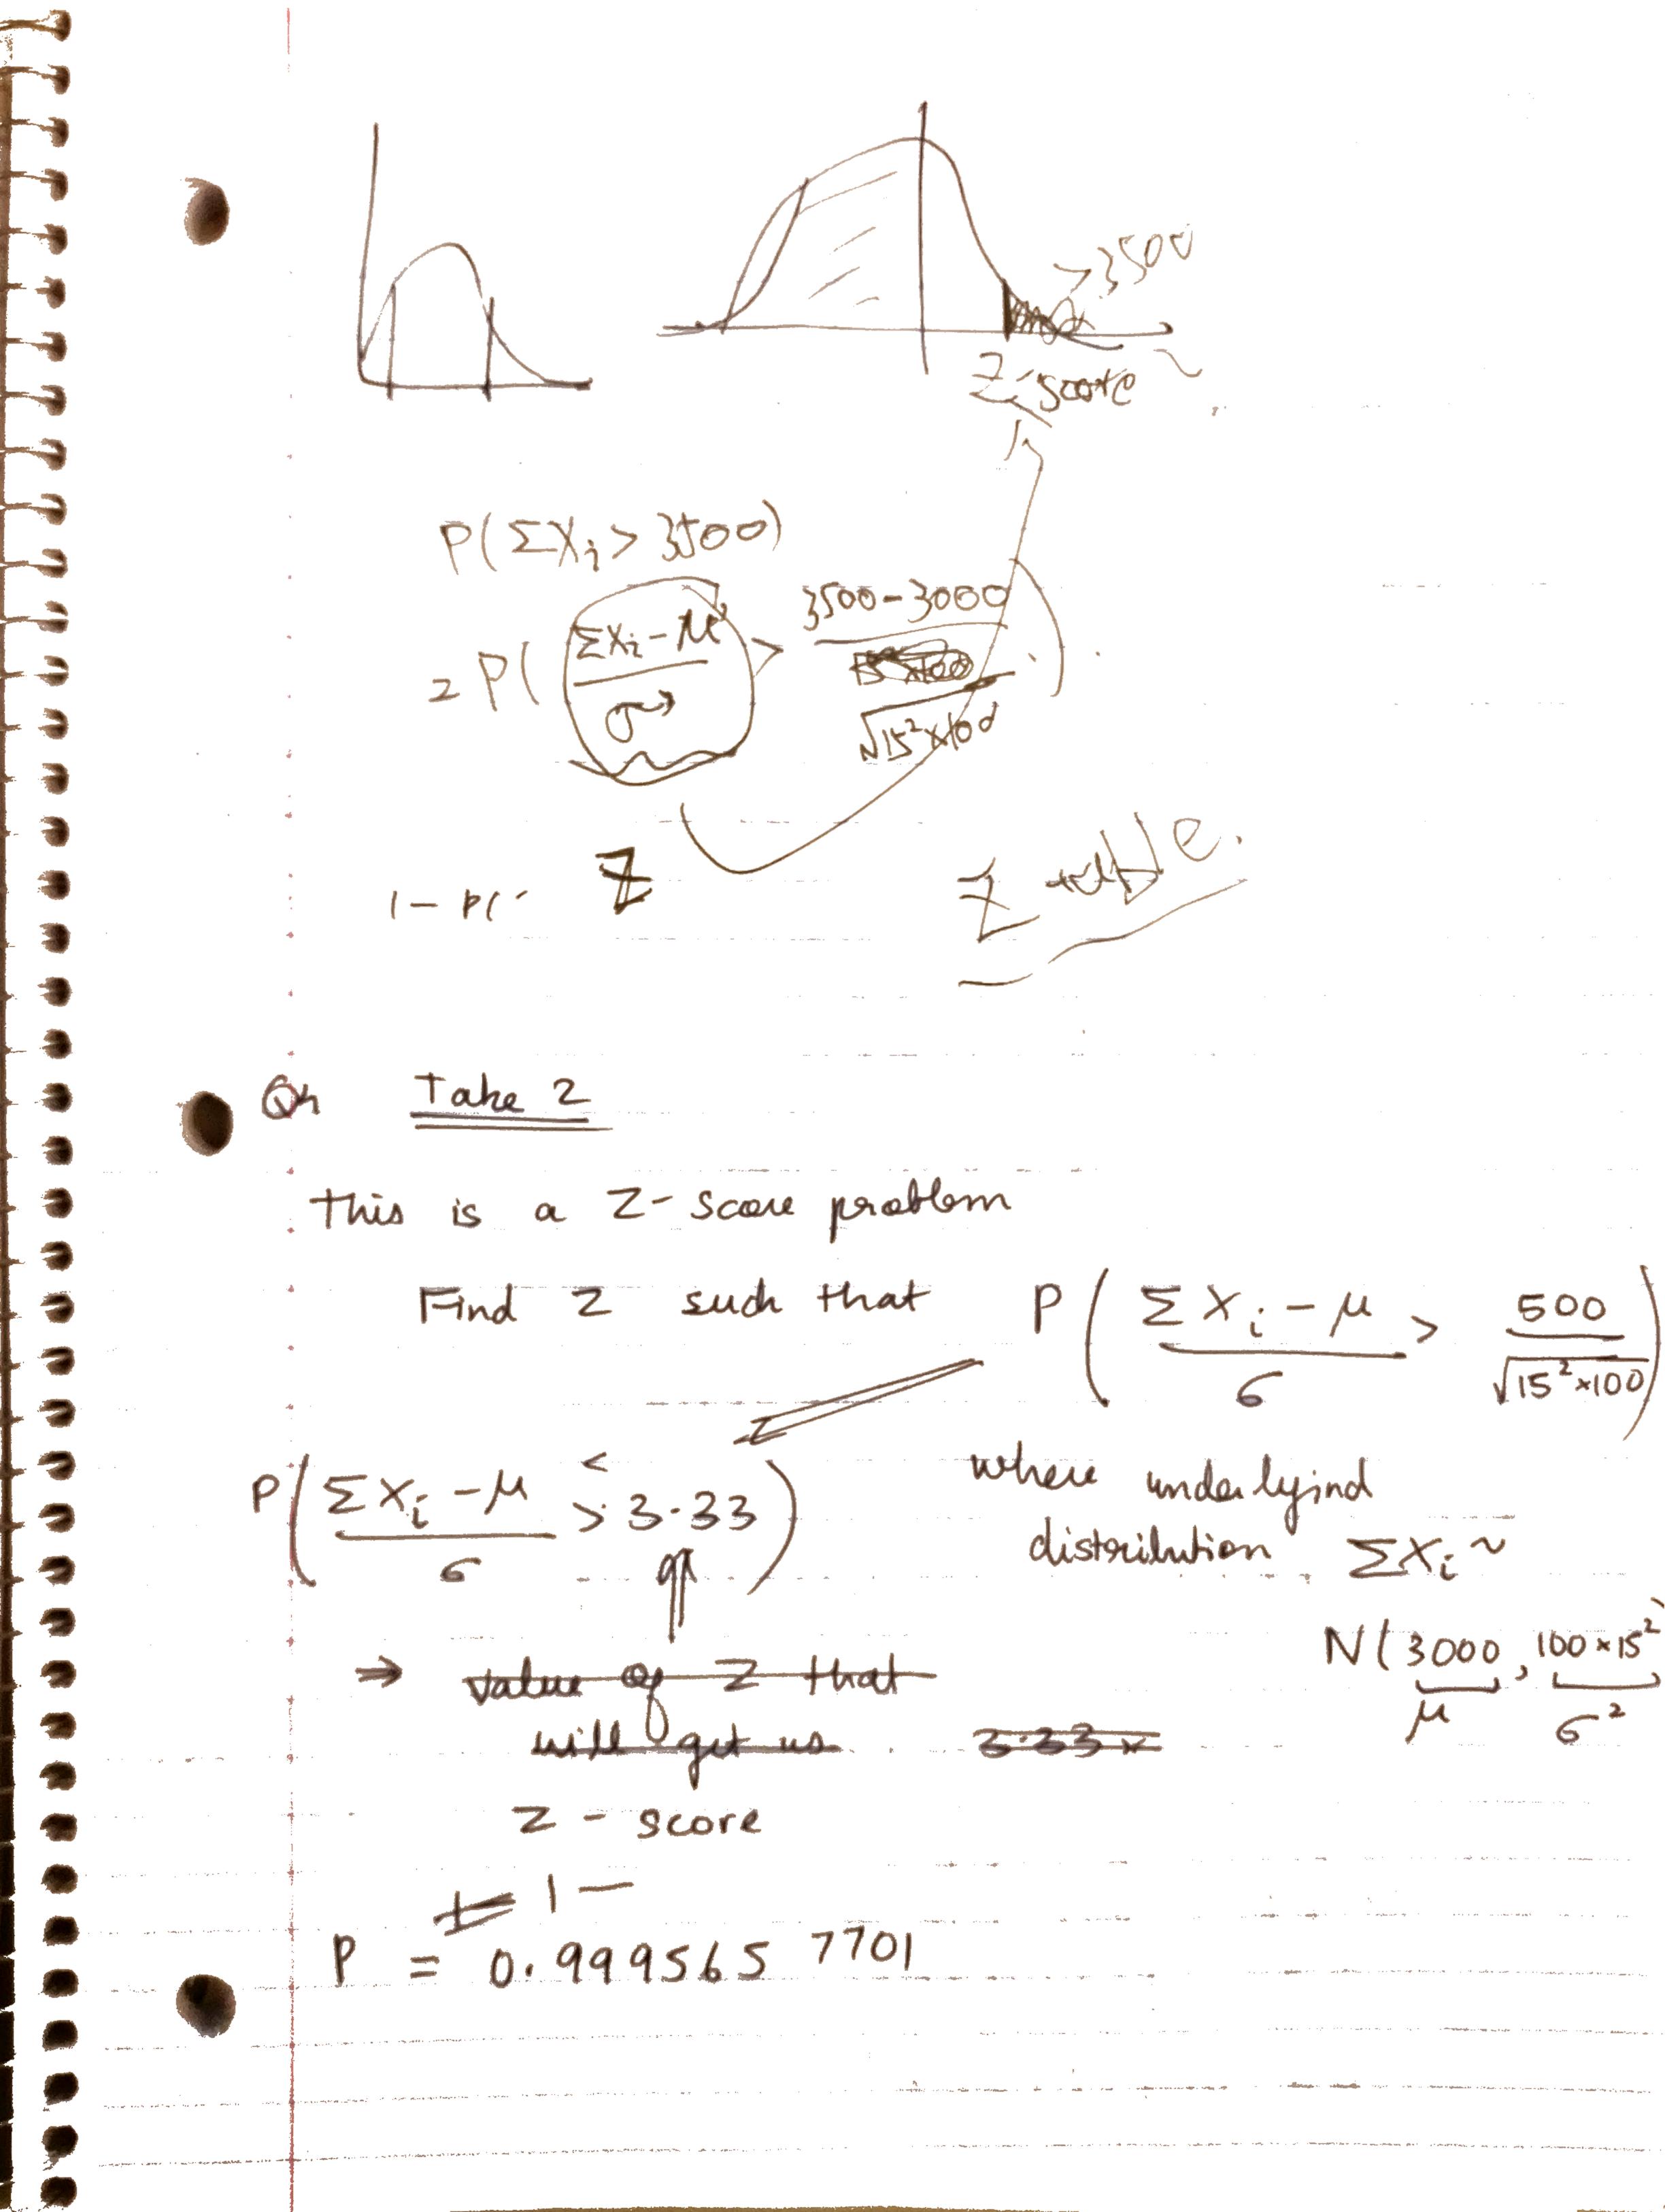 > 3500
Z-score
P(ΣXi > 3500)
= P( (ΣXi - μ)/σ > (3500 - 3000)/√15²×100 ).
1 - P(
Z
Z table.
Q4 Take 2
This is a Z-score problem
Find Z such that P( (ΣXi - μ)/σ > 500/√15²×100 )
P( (ΣXi - μ)/σ < > 3.33 )
where underlyind
distribution ΣXi ~
N(3000, 100×15²
μ σ²
⇒ value of Z that
will get us 3.33
Z - score
= 1 -
P = 0.9995657701